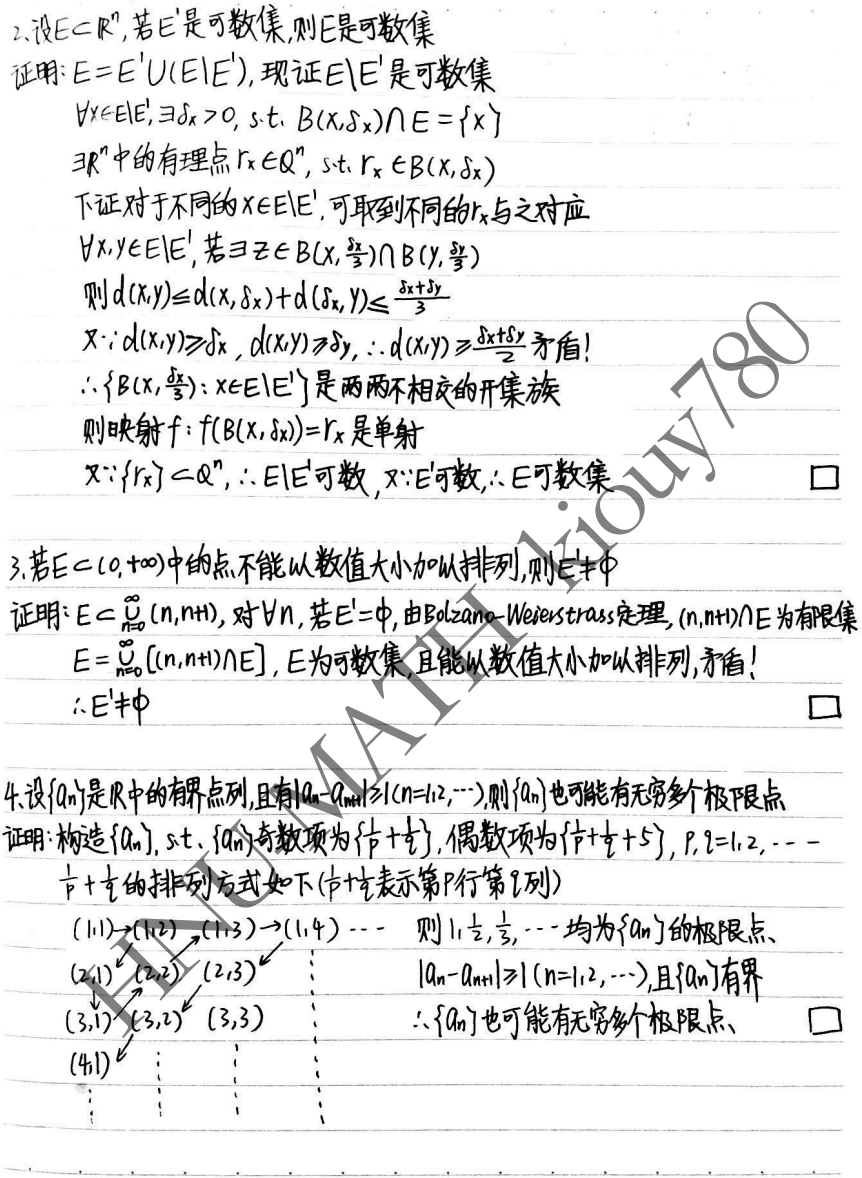 2.设E⊂ℝⁿ,若E'是可数集,则E是可数集
证明:E=E'∪(E\E'),现证E\E'是可数集
∀x∈E\E',∃δₓ>0, s.t. B(x,δₓ)∩E={x}
∃ℝⁿ中的有理点rₓ∈Qⁿ, s.t. rₓ∈B(x,δₓ)
下证对于不同的x∈E\E',可取到不同的rₓ与之对应
∀x,y∈E\E',若∃z∈B(x,δₓ/3)∩B(y,δy/3)
则d(x,y)≤d(x,δₓ)+d(δₓ,y)≤(δₓ+δy)/3
又∵d(x,y)≥δₓ, d(x,y)≥δy,∴d(x,y)≥(δₓ+δy)/2 矛盾!
∴{B(x,δₓ/3):x∈E\E'}是两两不相交的开集族
则映射f:f(B(x,δₓ))=rₓ是单射
又∵{rₓ}⊂Qⁿ,∴E\E'可数,又∵E'可数,∴E可数集 □
3.若E⊂(0,+∞)中的点不能以数值大小加以排列,则E'≠φ
证明:E⊂∪ₙ₌₀^∞(n,n+1),对∀n,若E'=φ,由Bolzano-Weierstrass定理,(n,n+1)∩E为有限集
E=∪ₙ₌₀^∞[(n,n+1)∩E],E为可数集,且能以数值大小加以排列,矛盾!
∴E'≠φ □
4.设{aₙ}是ℝ中的有界点列,且有|aₙ-aₙ₊₁|≥1(n=1,2,⋯),则{aₙ}也可能有无穷多个极限点
证明:构造{aₙ}, s.t. {aₙ}奇数项为{1/p+1/q},偶数项为{1/p+1/q+5}, p,q=1,2,⋯⋯
1/p+1/q的排列方式如下(1/p+1/q表示第p行第q列)
(1,1)→(1,2) (1,3)→(1,4)⋯⋯ 则1,1/2,1/3,⋯均为{aₙ}的极限点、
(2,1) (2,2) (2,3) |aₙ-aₙ₊₁|≥1(n=1,2,⋯),且{aₙ}有界
(3,1) (3,2) (3,3) ∴{aₙ}也可能有无穷多个极限点、 □
(4,1)
HNU MATH kiouy780